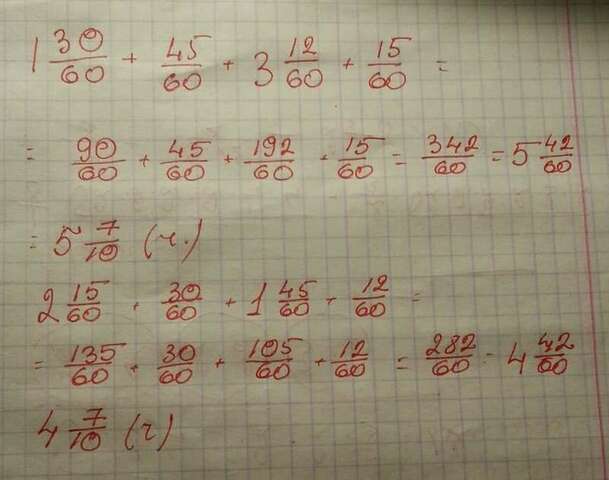 1 30/60 + 45/60 + 3 12/60 + 15/60 =
= 90/60 + 45/60 + 192/60 + 15/60 = 342/60 = 5 42/60
= 5 7/10 (ч.)
2 15/60 + 30/60 + 1 45/60 + 12/60 =
= 135/60 + 30/60 + 105/60 + 12/60 = 282/60 = 4 42/60
4 7/10 (ч)